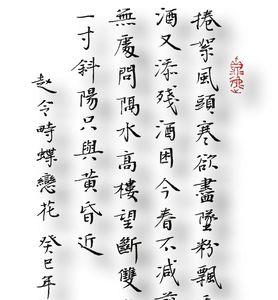 捲絮風頭寒欲盡墜粉飄
酒又添殘酒困今春不減前
無處問隔水高樓望斷雙
一寸斜陽只與黃昏近
趙令時蝶戀花 癸巳年